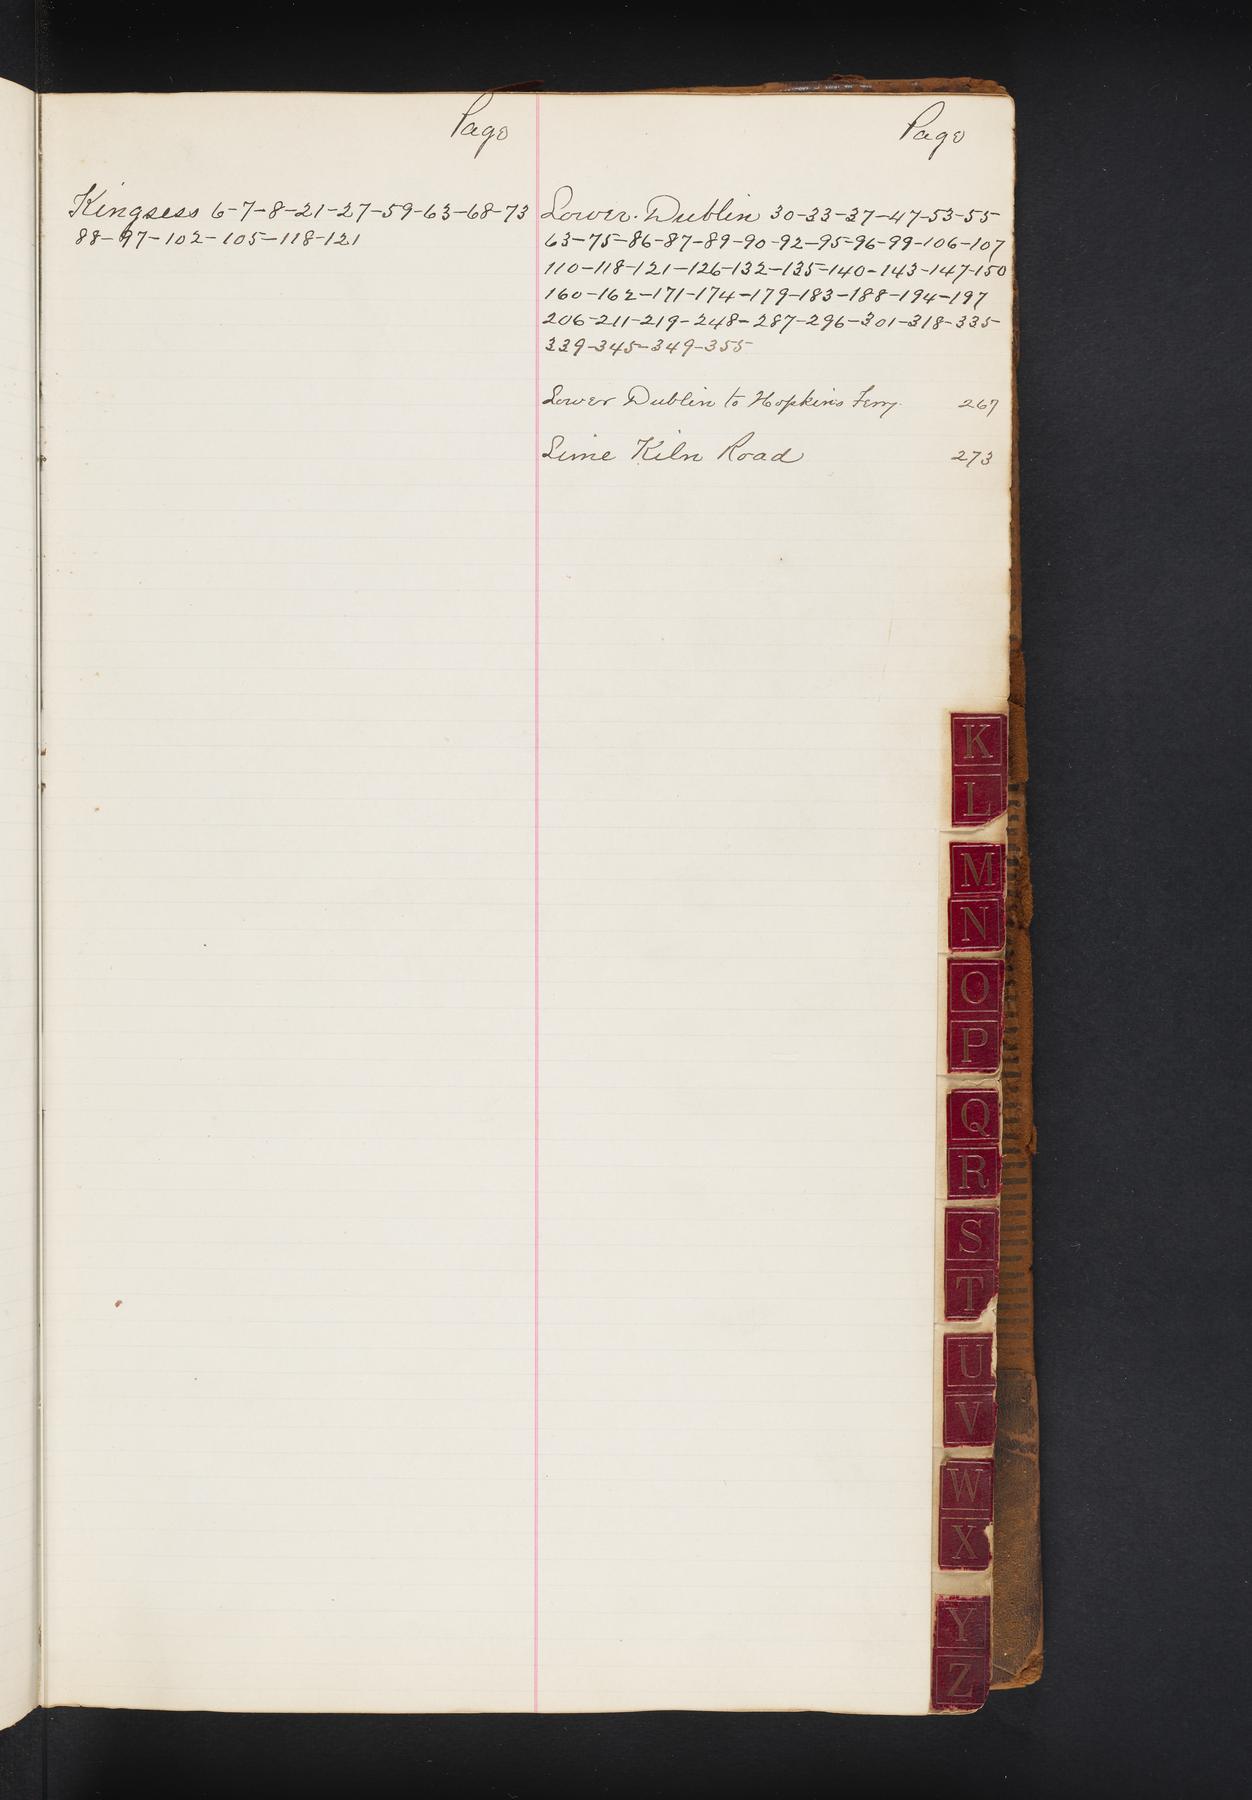 Page
Kingsess 6-7-8-21-27-59-63-68-73
88-97-102-105-118-121
Page
Lower Dublin 30-33-37-47-53-55
63-75-86-87-89-90-92-95-96-99-106-107
110-118-121-126-132-135-140-143-147-150
160-162-171-174-179-183-188-194-197
206-211-219-248-287-296-301-318-335
339-345-349-355
Lower Dublin to Hopkins Ferry 267
Lime Kiln Road 273
K
L
M
N
O
P
Q
R
S
T
U
V
W
X
Y
Z